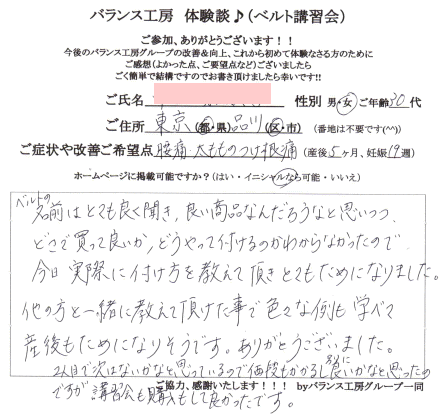 バランス工房 体験談♪(ベルト講習会)
ご参加、ありがとうございます！！
今後のバランス工房グループの改善&向上、これから初めて体験なさる方のために
ご感想(よかった点、ご要望点など)ございましたら
ごく簡単で結構ですのでお書き頂けましたら幸いです!!
ご氏名 性別 男・女 ご年齢30代
ご住所 東京(都・県) 品川(区・市) (番地は不要です(^^))
ご症状や改善ご希望点 腰痛・太もものつけ根痛 (産後5ヶ月、妊娠19週)
ホームページに掲載可能ですか？(はい・イニシャルなら可能・いいえ)
ベルトの
名前はとても良く聞き、良い商品なんだろうなと思いつつ
どこで買って良いか、どうやって付けるのかわからなかったので
今日実際に付け方を教えて頂きとてもためになりました。
他の方と一緒に教えて頂けた事で色々な例も学べて
産後もためになりそうです。ありがとうございました。
2人目で次はないかなと思っているので値段もかかるし別に
良いかなと思ったの
ですが講習会も購入もして良かったです。
ご協力、感謝いたします！！！ byバランス工房グループ一同